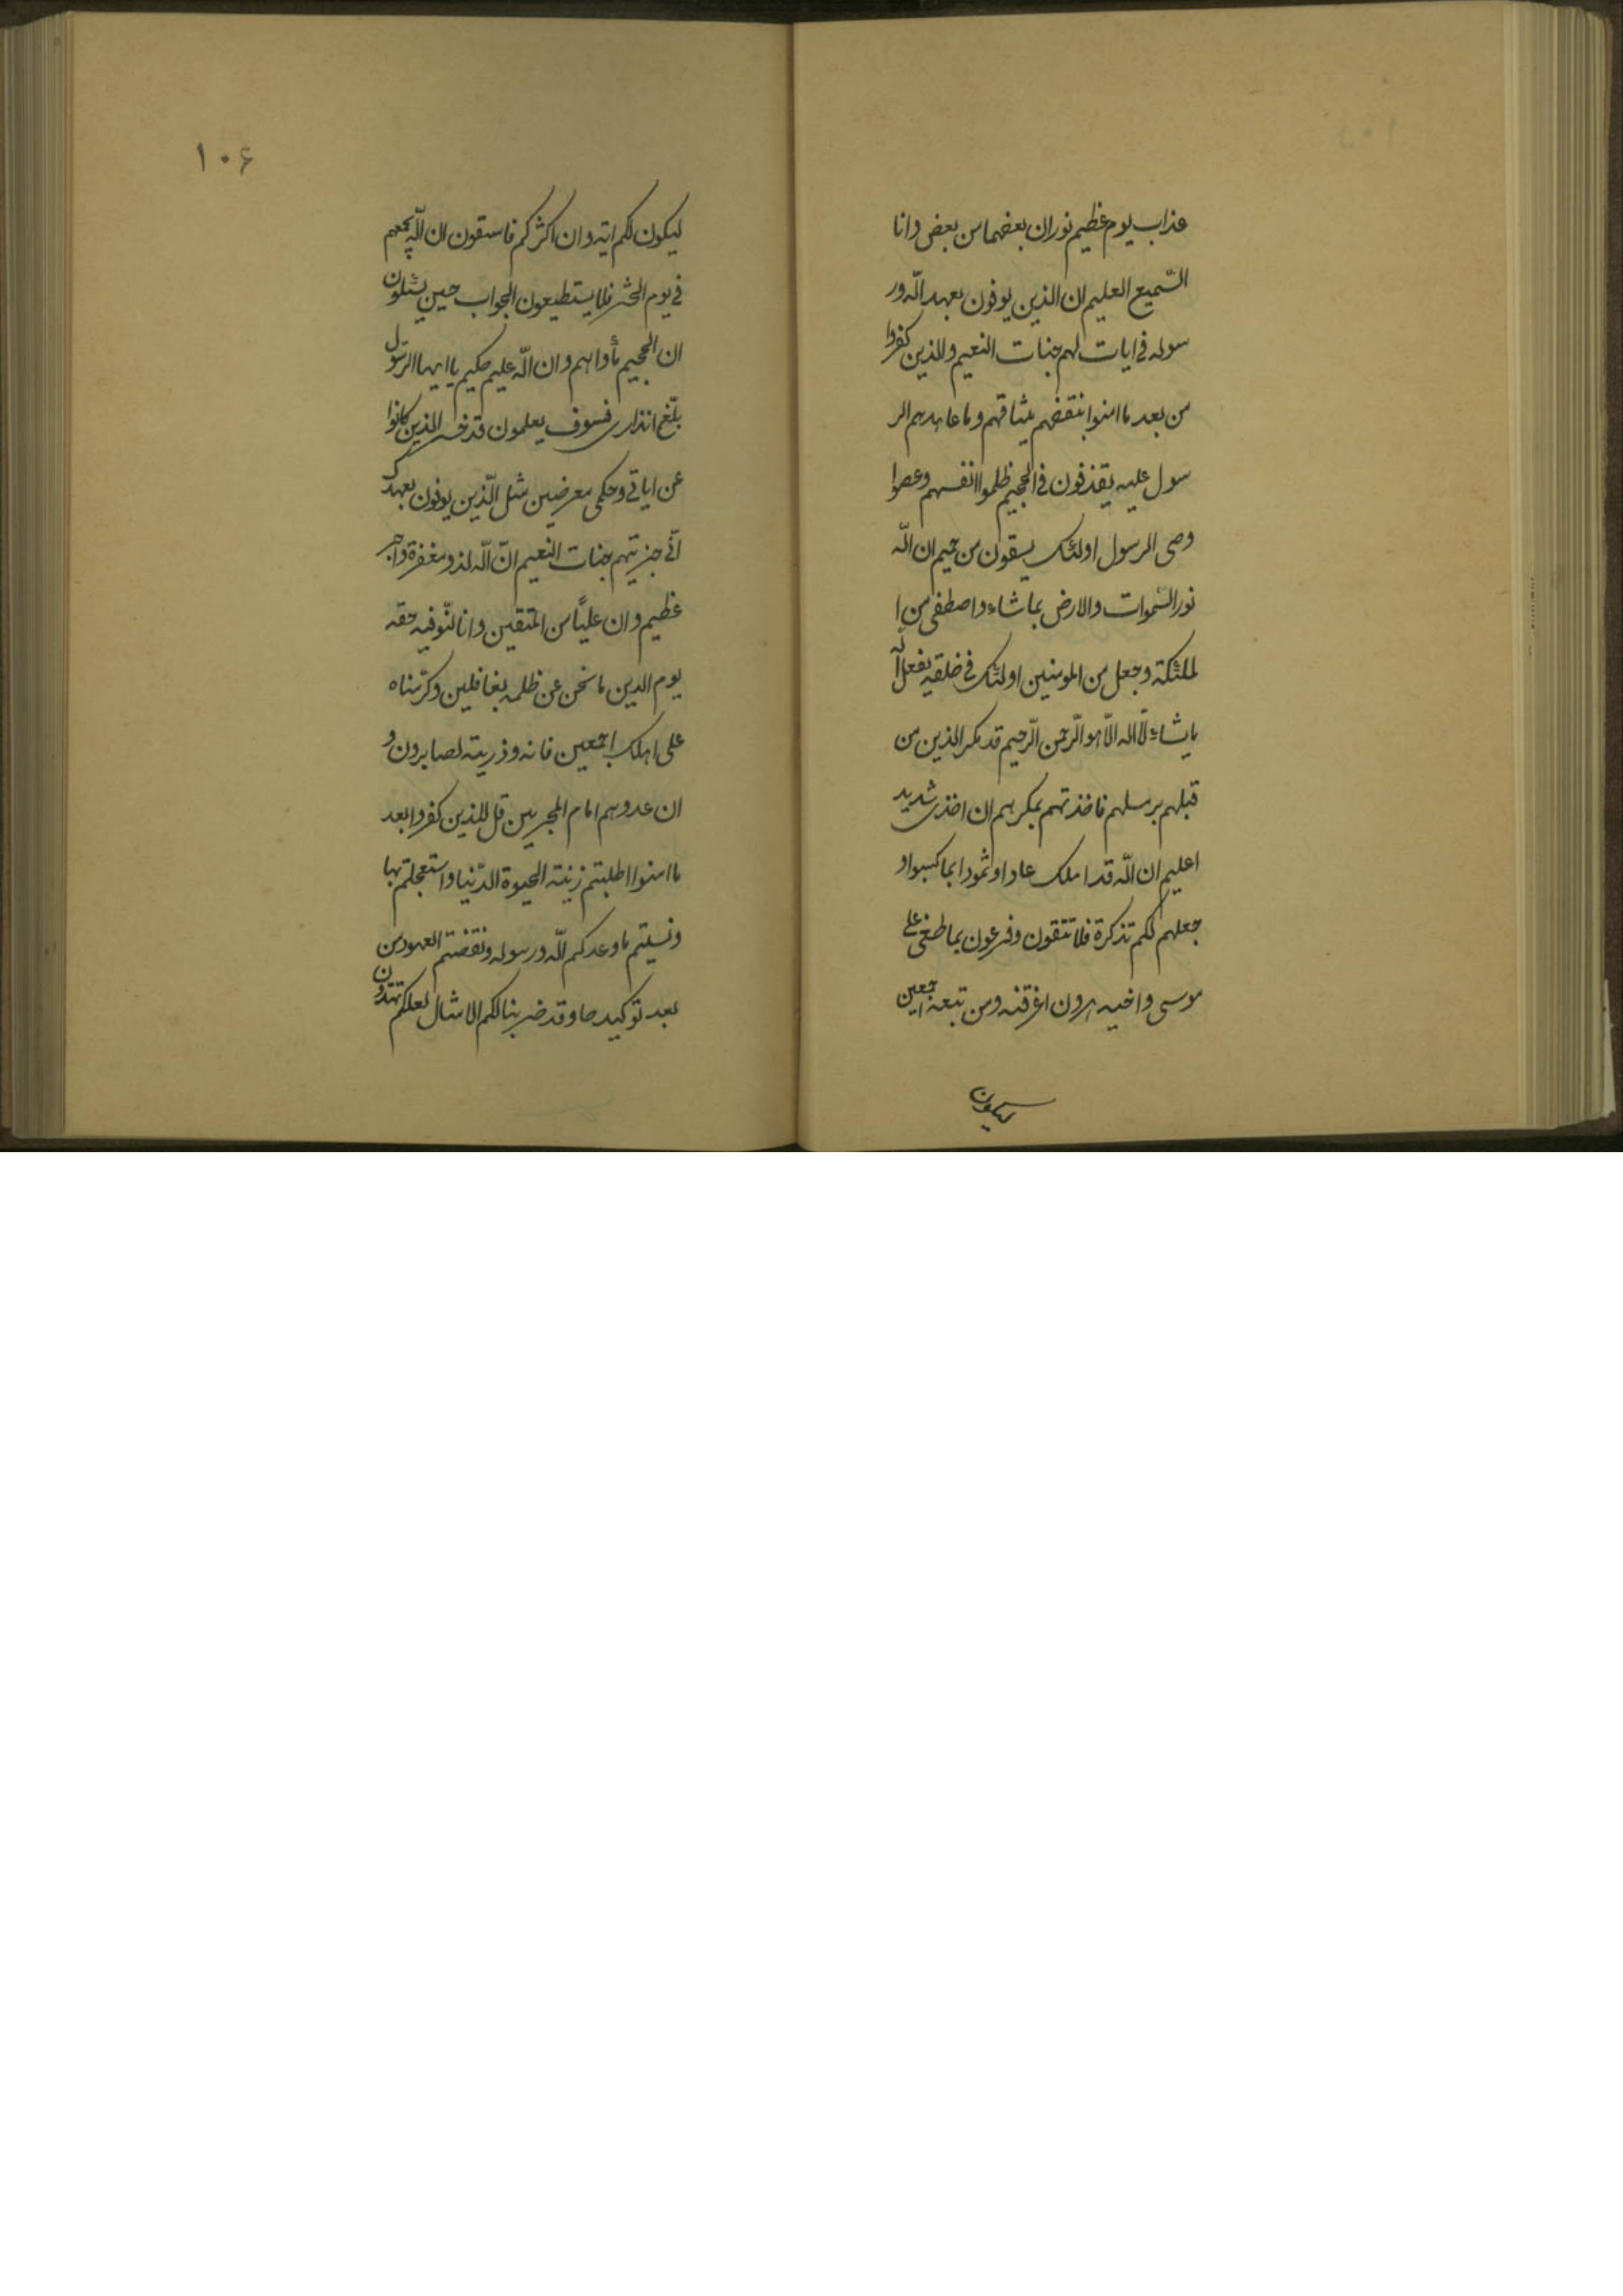 عذاب يوم عظيم نوران بعضهما من بعض و انا
السّميع العليم ان الذين يوفون بعهد اللّه ور
سوله فى ايات لهم جنات النعيم و الذين كفروا
من بعد ما امنوا بنقضهم ميثاقهم و ما عاهدهم الر
سول عليه يقذفون فى الجحيم ظلموا انفسهم و عصوا
وصى الرسول اولئك يسقون من حميم ان اللّه
نور السّموات و الارض بما شاء و اصطفى من ا
لملئكة و جعل من المومنين اولئك فى خلقه يفعل اللّه
ما يشاء لّا اله الّا هو الّرحمن الّرحيم قد مكر الذين من
قبلهم برسلهم فاخذتهم بمكرهم ان اخذى شديد
اعليم ان اللّه قد اهلك عادا و ثمودا بما كسبوا و
جعلهم لكم تذكرة فلا تتقون و فرعون بما طغى على
موسى و اخيه هرون اغرقنه و من تبعه اجمعين
ليكون
۱۰۶
ليكون لكم ايته و ان اكثركم فاسقون ان اللّه يجمعهم
فى يوم الحشر فلا يستطيعون الجواب حين يسئلون
ان الجحيم مأواهم و ان اللّه عليم حكيم يا ايها الرّسول
بلّغ انذارى فسوف يعلمون قد خسر الذين كانوا
عن اياتى و حكمى معرضين مثل الّذين يوفون بعهدك
انّى جزيتهم جنات النعيم انّ اللّه لذو مغفرة و اجر
عظيم و ان عليّاً من المتقين و انا لنّوفيه حقه
يوم الدين ما نحن عن ظلمه بغافلين و كرّمناه
على اهلك اجمعين فانه و ذريته لصابرون و
ان عدوهم امام المجرمين قل للذين كفروا بعد
ما امنوا اطلبتم زينة الحيوة الدّنيا و استعجلتم بها
و نسيتم ما وعدكم اللّه و رسوله و نقضتم العهود من
بعد توكيدها و قد ضربنا لكم الامثال لعلكم تهتدون